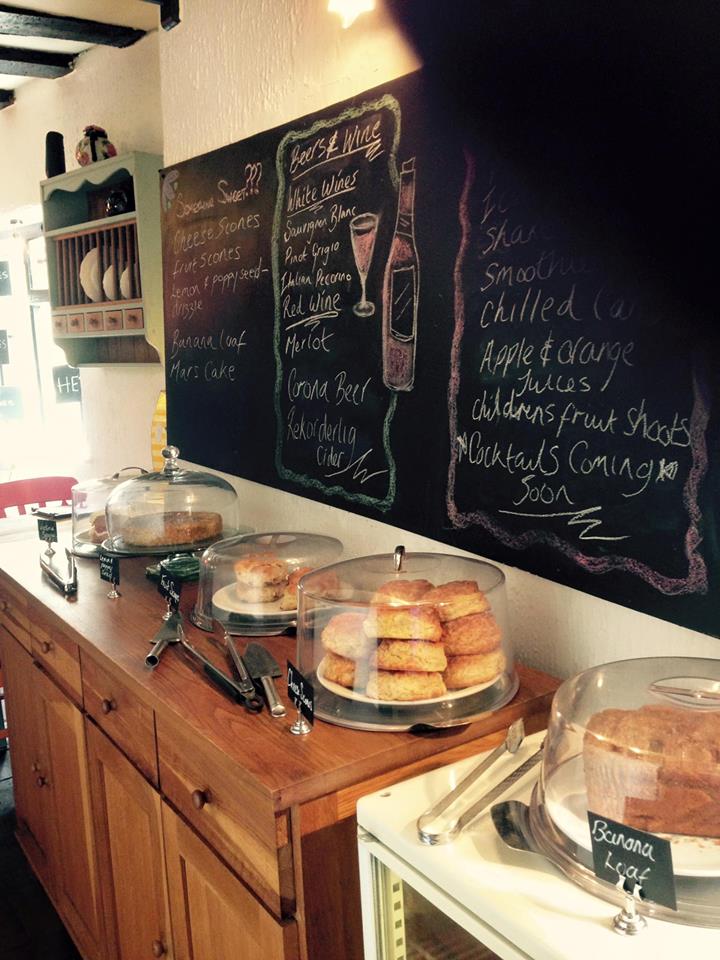 Something Sweet???
Cheese Scones
fruit Scones
Lemon & poppy seed
drizzle
Banana loaf
Mars Cake
Beers & Wine
White Wines
Sauvignon Blanc
Pinot Grigio
Italian Pecorino
Red Wine
Merlot
Corona Beer
Rekorderlig
Cider
Smoothie
Chilled
Apple & orange
Juices
childrens fruit shoots
Cocktails Coming
Soon
HE
Banana
Loaf